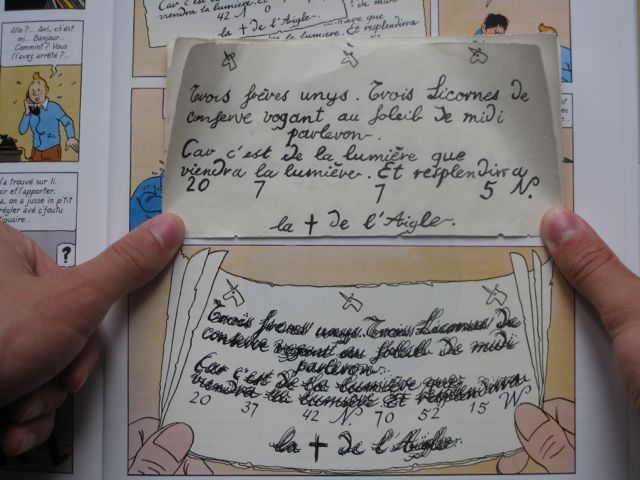 viendra la lumière
42 N
la † de l'Aigle
la lumière. Et resplendira
Allo?... Awi, ch'est
mi... Banjour...
Commint? Vous
l'avez arrêté?...
trouvé sur li.
nir et l'apporter.
on a jusse in p'tit
régler avé ç'foutu
?
Trois frères unys. Trois Licornes de
conserve vogant au soleil de midi
parleron.
Car c'est de la lumière que
viendra la lumière. Et resplendira
20 7 7 5 N.
la † de l'Aigle.
Trois frères unys. Trois Licornes de
conserve vogant au soleil de midi
parleron.
Car c'est de la lumière que
viendra la lumière. Et resplendira
20 37 42 N. 70 52 15 W
la † de l'Aigle.